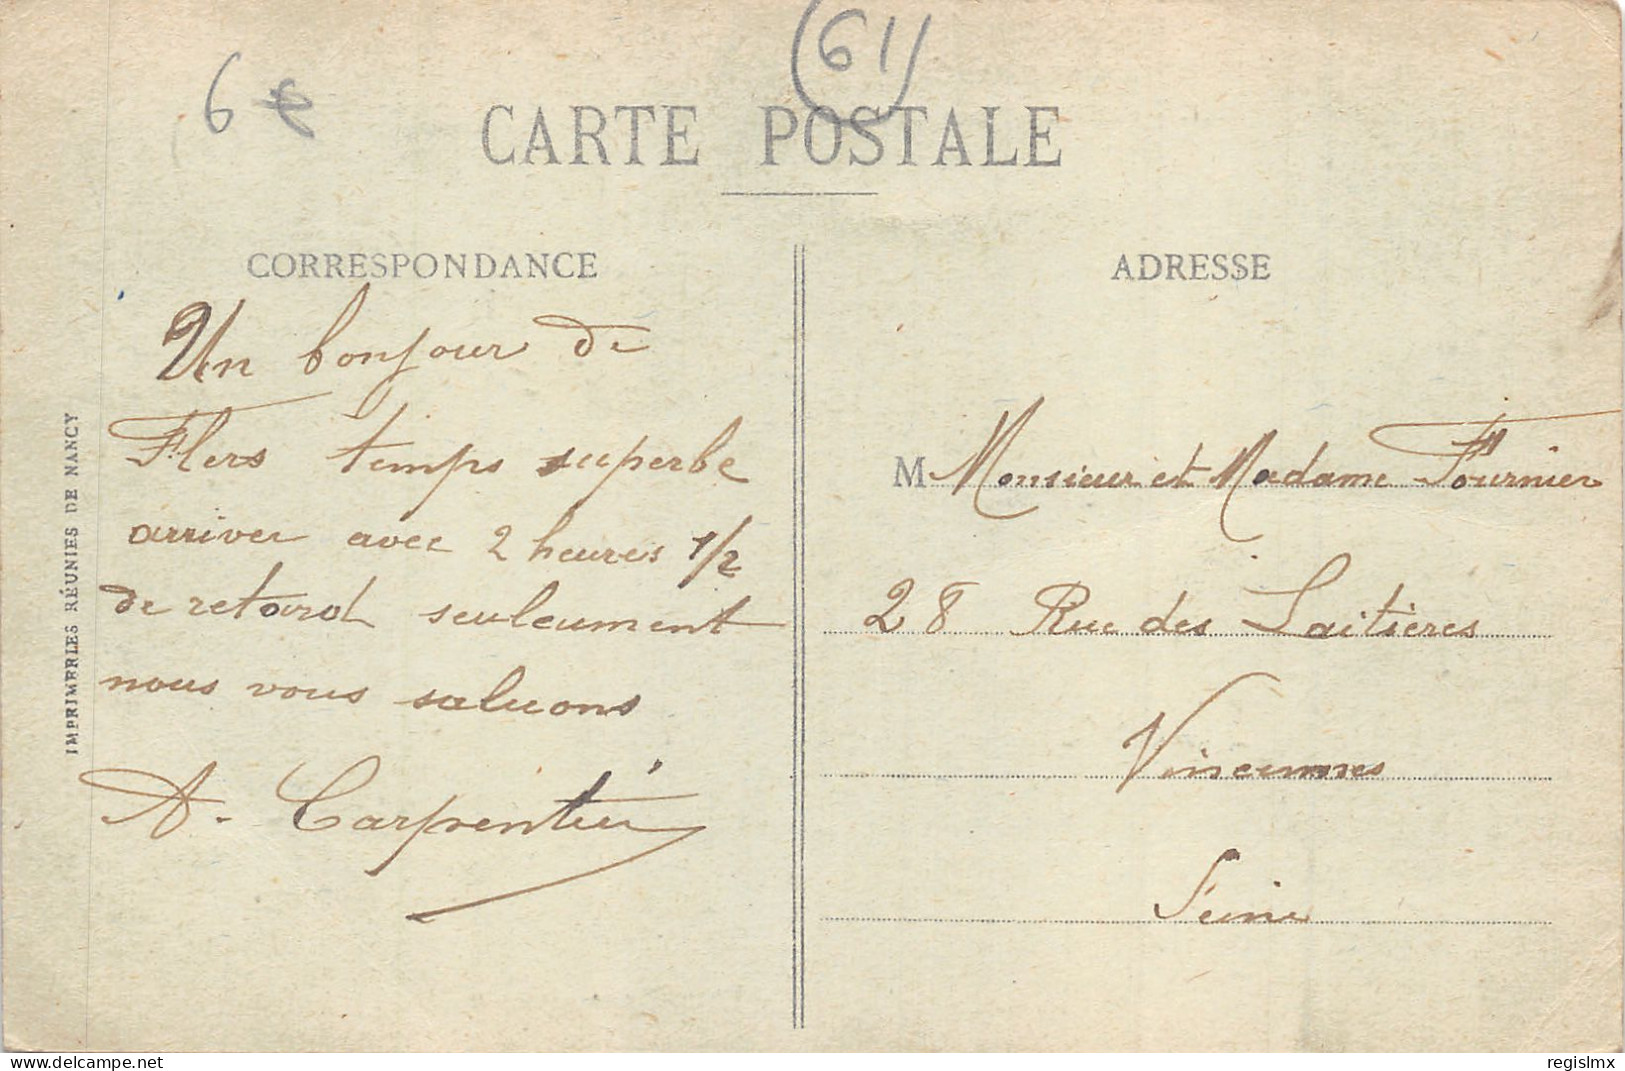 6 €
(61)
CARTE POSTALE
CORRESPONDANCE
Un bonjour de
Flers temps superbe
arriver avec 2 heures 1/2
de retard seuleument
nous vous saluons
A. Carpentier
IMPRIMERIES RÉUNIES DE NANCY
ADRESSE
M Monsieur et Madame Fournier
28 Rue des Laitières
Vincennes
Seine
www.delcampe.net
regislmx